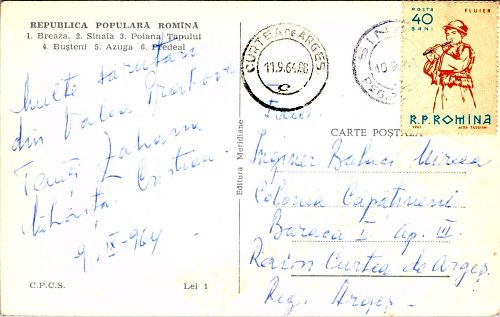 REPUBLICA POPULARĂ ROMÎNĂ
1. Breaza. 2. Sinaia 3. Poiana Țapului
4. Bușteni 5. Azuga 6. Predeal
Multe sărutări
din Valea Prahovei
Zaharia
Cristian
9.IX-964
C.P.C.S.
Lei 1
Editura Meridiane
CURTEA DE ARGEȘ
11.9.64.
SIN
10.9.
POSTA
40
BANI
FLUIER
R.P.ROMINA
1961
AIDA TASGIAN
CARTE POȘTALĂ
Inginer Baluci Mircea
Colonia Capățineni
Baraca I Ap. III.
Raion Curtea de Argeș
Reg. Argeș